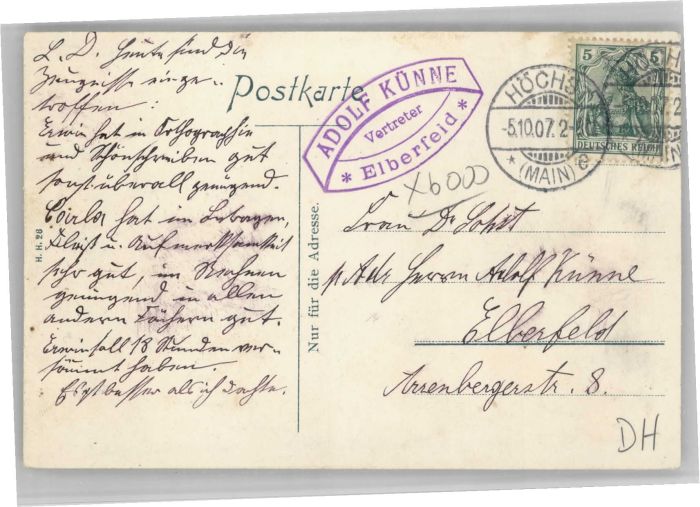 L. D. Heute sind die
Zeugnisse einge-
troffen:
Erwin hat in Orthographie
und Schönschreiben gut
sonst überall genügend.
Carla hat im Betragen,
Fleiß u. Aufmerksamkeit
sehr gut, im Rechnen
genügend in allen
andern Fächern gut.
Erwin soll 18 Stunden ver-
säumt haben.
Es ist besser als ich dachte.
H. H. 26
Postkarte
ADOLF KÜNNE
Vertreter
* Elberfeld *
Nur für die Adresse.
X6000
Frau Dr
p Adr Herrn Adolf Künne
Elberfeld
Arrenbergerstr. 8.
DH
HÖCHS
-5.10.07. 2-
* (MAIN) c
5 5
DEUTSCHES REICH
HÖCH